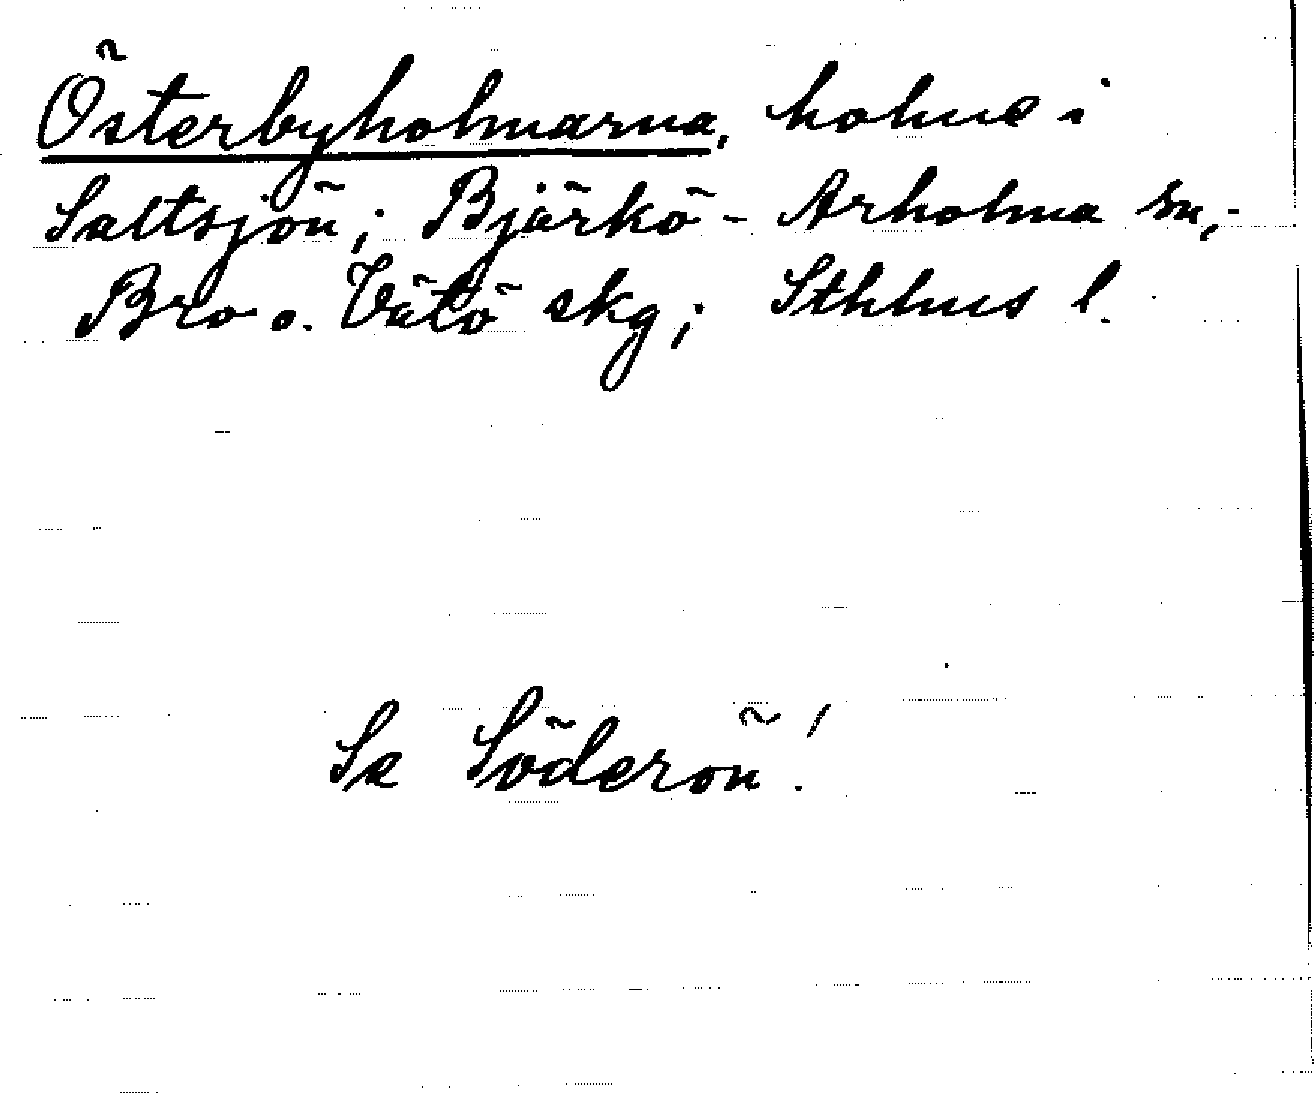 Österbyholmarna, holme i
Saltsjön; Björkö-Arholma sn,
Bro o. Vätö skg; Sthlms l.
Se Söderön!